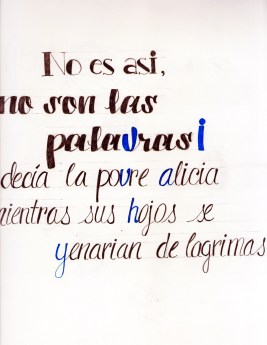 No es asi,
no son las
palavras¡
decía la povre alicia
mientras sus hojos se
yenarian de lagrimas